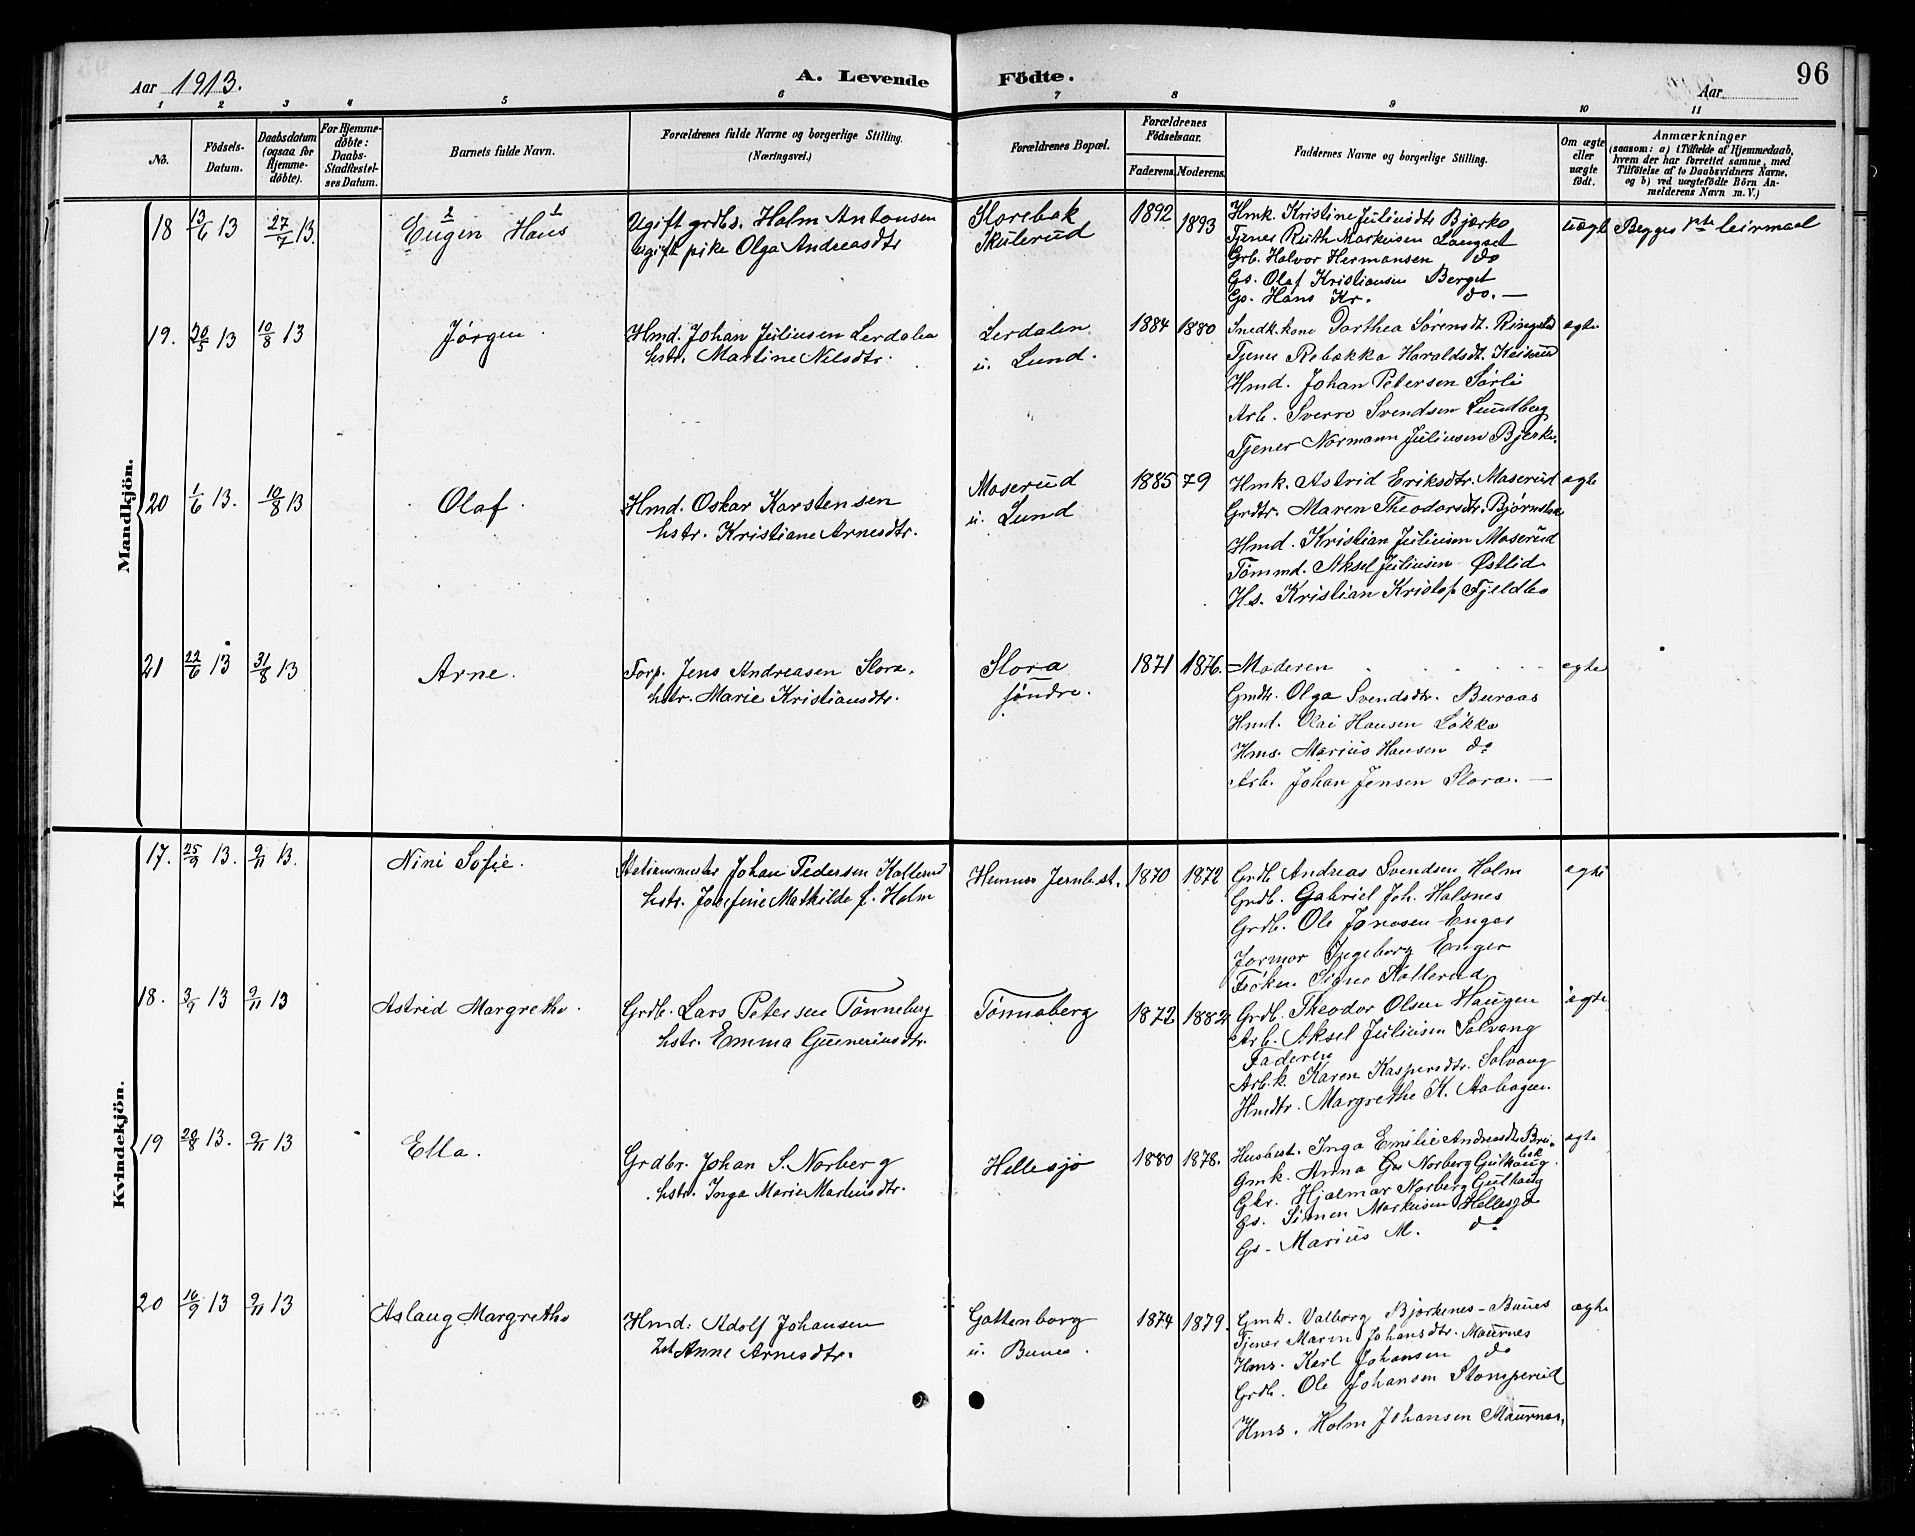 Aar 1913.
A. Levende Födte.
96
Aar
1 2 3 4 5 6 7 8 9 10 11
No.
Födsels-Datum.
Daabsdatum (ogsaa for Hjemme-döbte).
For Hjemme-döbte: Daabs-Stadfæstel-ses Datum.
Barnets fulde Navn.
Forældrenes fulde Navne og borgerlige Stilling.
(Næringsvei.)
Forældrenes Bopæl.
Forældrenes Födselsaar.
Faderens. Moderens.
Faddernes Navne og borgerlige Stilling.
Om ægte eller uægte födt.
Anmærkninger
(saasom: a) i Tilfælde af Hjemmedaab,
hvem der har forrettet samme, med
Tilföielse af to Daabsvidners Navne,
og b) ved uægtefödte Börn An-
melderens Navn m. V.)
Mandkjön.
18 13/6 13 27/7 13. Eugen Hans
2 1
Ugift grdbs. Holm Antonsen
Ugift pike Olga Andreasdtr
Storebak
Skulerud
1892 1893
Hmk. Kristine Juliusdtr Bjerke
Tjener Ruth Markusen Langset
Grb. Halvor Hermansen do
Gs. Olaf Kristiansen Berget
Gs. Hans Kr. do. —
uægte Begges 1ste leirmaal
19. 20/5 13 10/8 13 Jørgen.
Hmd. Johan Juliusen Lerdalen
hstr. Martine Nilsdtr.
Lerdalen
u. Lund.
1884 1880
Snedk. kone Dorthea Sørensdt. Ringstad
Tjener Rebekka Haraldsdt. Keiserud
Hmd. Johan Petersen Sørli
Arb. Sverre Svendsen Lundberg
Tjener Normann Juliusen Bjerke.
egte
20 1/6 13. 10/8 13 Olaf.
Hmd. Oskar Karstensen
hstr. Kristiane Arnesdtr.
Moserud
u. Lund
1885 79
Hmk. Astrid Eriksdtr. Moserud
Grdtr. Maren Theodorsdtr. Bjørnstad
Hmd. Kristian Juliusen Moserud
Tømmd. Aksel Juliusen Østlid
Hs. Kristian Kristof. Fjeldbo
egte
21 22/6 13 31/8 13 Arne.
Forp. Jens Andreasen Slora.
hstr. Marie Kristiansdtr.
Slora
søndre.
1871 1876.
Moderen
Gmdtr. Olga Svendsdtr. Buraas
Hmd. Olai Hansen Løkka
Hms. Marius Hansen do
Arb. Johan Jensen Slora. —
egte
Kvindekjön.
17. 25/9 13. 9/11 13. Nini Sofie.
Stationsmester Johan Pedersen Kallerud
hstr. Josefine Mathilde f. Holm
Hemnes Jernb.st.
1870 1872
Grdb. Andreas Svendsen Holm
Grdb. Gabriel Joh. Halsnes
Grdb. Ole Jonasen Enger
Jormor Ingeborg Enger
Frøken Signe Kallerud
egte
18. 3/9 13 9/11 13 Astrid Margrethe.
Grdb. Lars Petersen Tønneberg
hstr. Emma Gunneriusdtr.
Tønneberg
1872 1882
Grdb. Theodor Olsen Haugen
Arb. Aksel Juliusen Solvang
Faderen
Arb.k. Karen Kaspersdtr. Solvang
Hmdtr. Margrethe K. Aabogen.
egte
19 28/8 13. 9/11 13 Ella.
Grdbr. Johan S. Norberg
hstr. Inga Marie Martinsdtr.
Hellesjø
1880 1878.
Husbest. Inga Emilie Andreasdt. Brei-
bek
Gmk. Anna Gs Norberg Gulhaug.
Gbr. Hjalmar Norberg Gulhaug
Gs. Simen Markusen Hellesjø
Gs. Marius M. do
egte
20 16/9 13 9/11 13 Aslaug Margrethe
Hmd. Adolf Johansen
hst Anne Arnesdtr.
Gottenborg
u. Bunes.
1874 1879.
Gmk. Valborg Bjørkenes-Bunes
Tjener Marin Johansdtr. Maurnes
Hms. Karl Johansen do
Grdb. Ole Johansen Stomperud
Hms. Holm Johansen Maurnes.
ægte